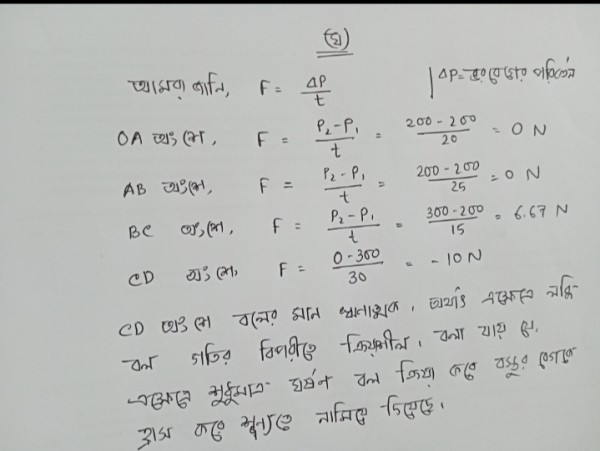 (ঘ)
আমরা জানি, F = ΔP/t | ΔP = ভরবেগের পরিবর্তন
OA অংশে, F = P₂-P₁/t = 200-200/20 = 0 N
AB অংশে, F = P₂-P₁/t = 200-200/25 = 0 N
BC অংশে, F = P₂-P₁/t = 300-200/15 = 6.67 N
CD অংশে, F = 0-300/30 = -10 N
CD অংশে বলের মান ঋণাত্মক, অর্থাৎ এক্ষেত্রে লব্ধি
বল গতির বিপরীতে ক্রিয়াশীল, বলা যায় যে,
এক্ষেত্রে শুধুমাত্র ঘর্ষণ বল ক্রিয়া করে বস্তুর বেগকে
হ্রাস করে শূন্যতে নামিয়ে দিয়েছে।